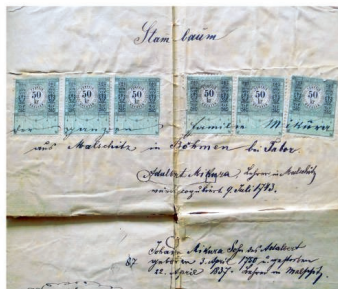 Stammbaum
50 kr 50 kr 50 kr 50 kr 50 kr 50 kr
der ganzen Familie Mikura
aus Malschitz in Böhmen bei Tabor
Adalbert Mikura, Lehrer in Malschitz
9. Juli 1793.
Johann Mikura Sohn des Adalbert
87 geboren 3. April 1750 u. gestorben
22. April 1837. Lehrer in Malschitz.